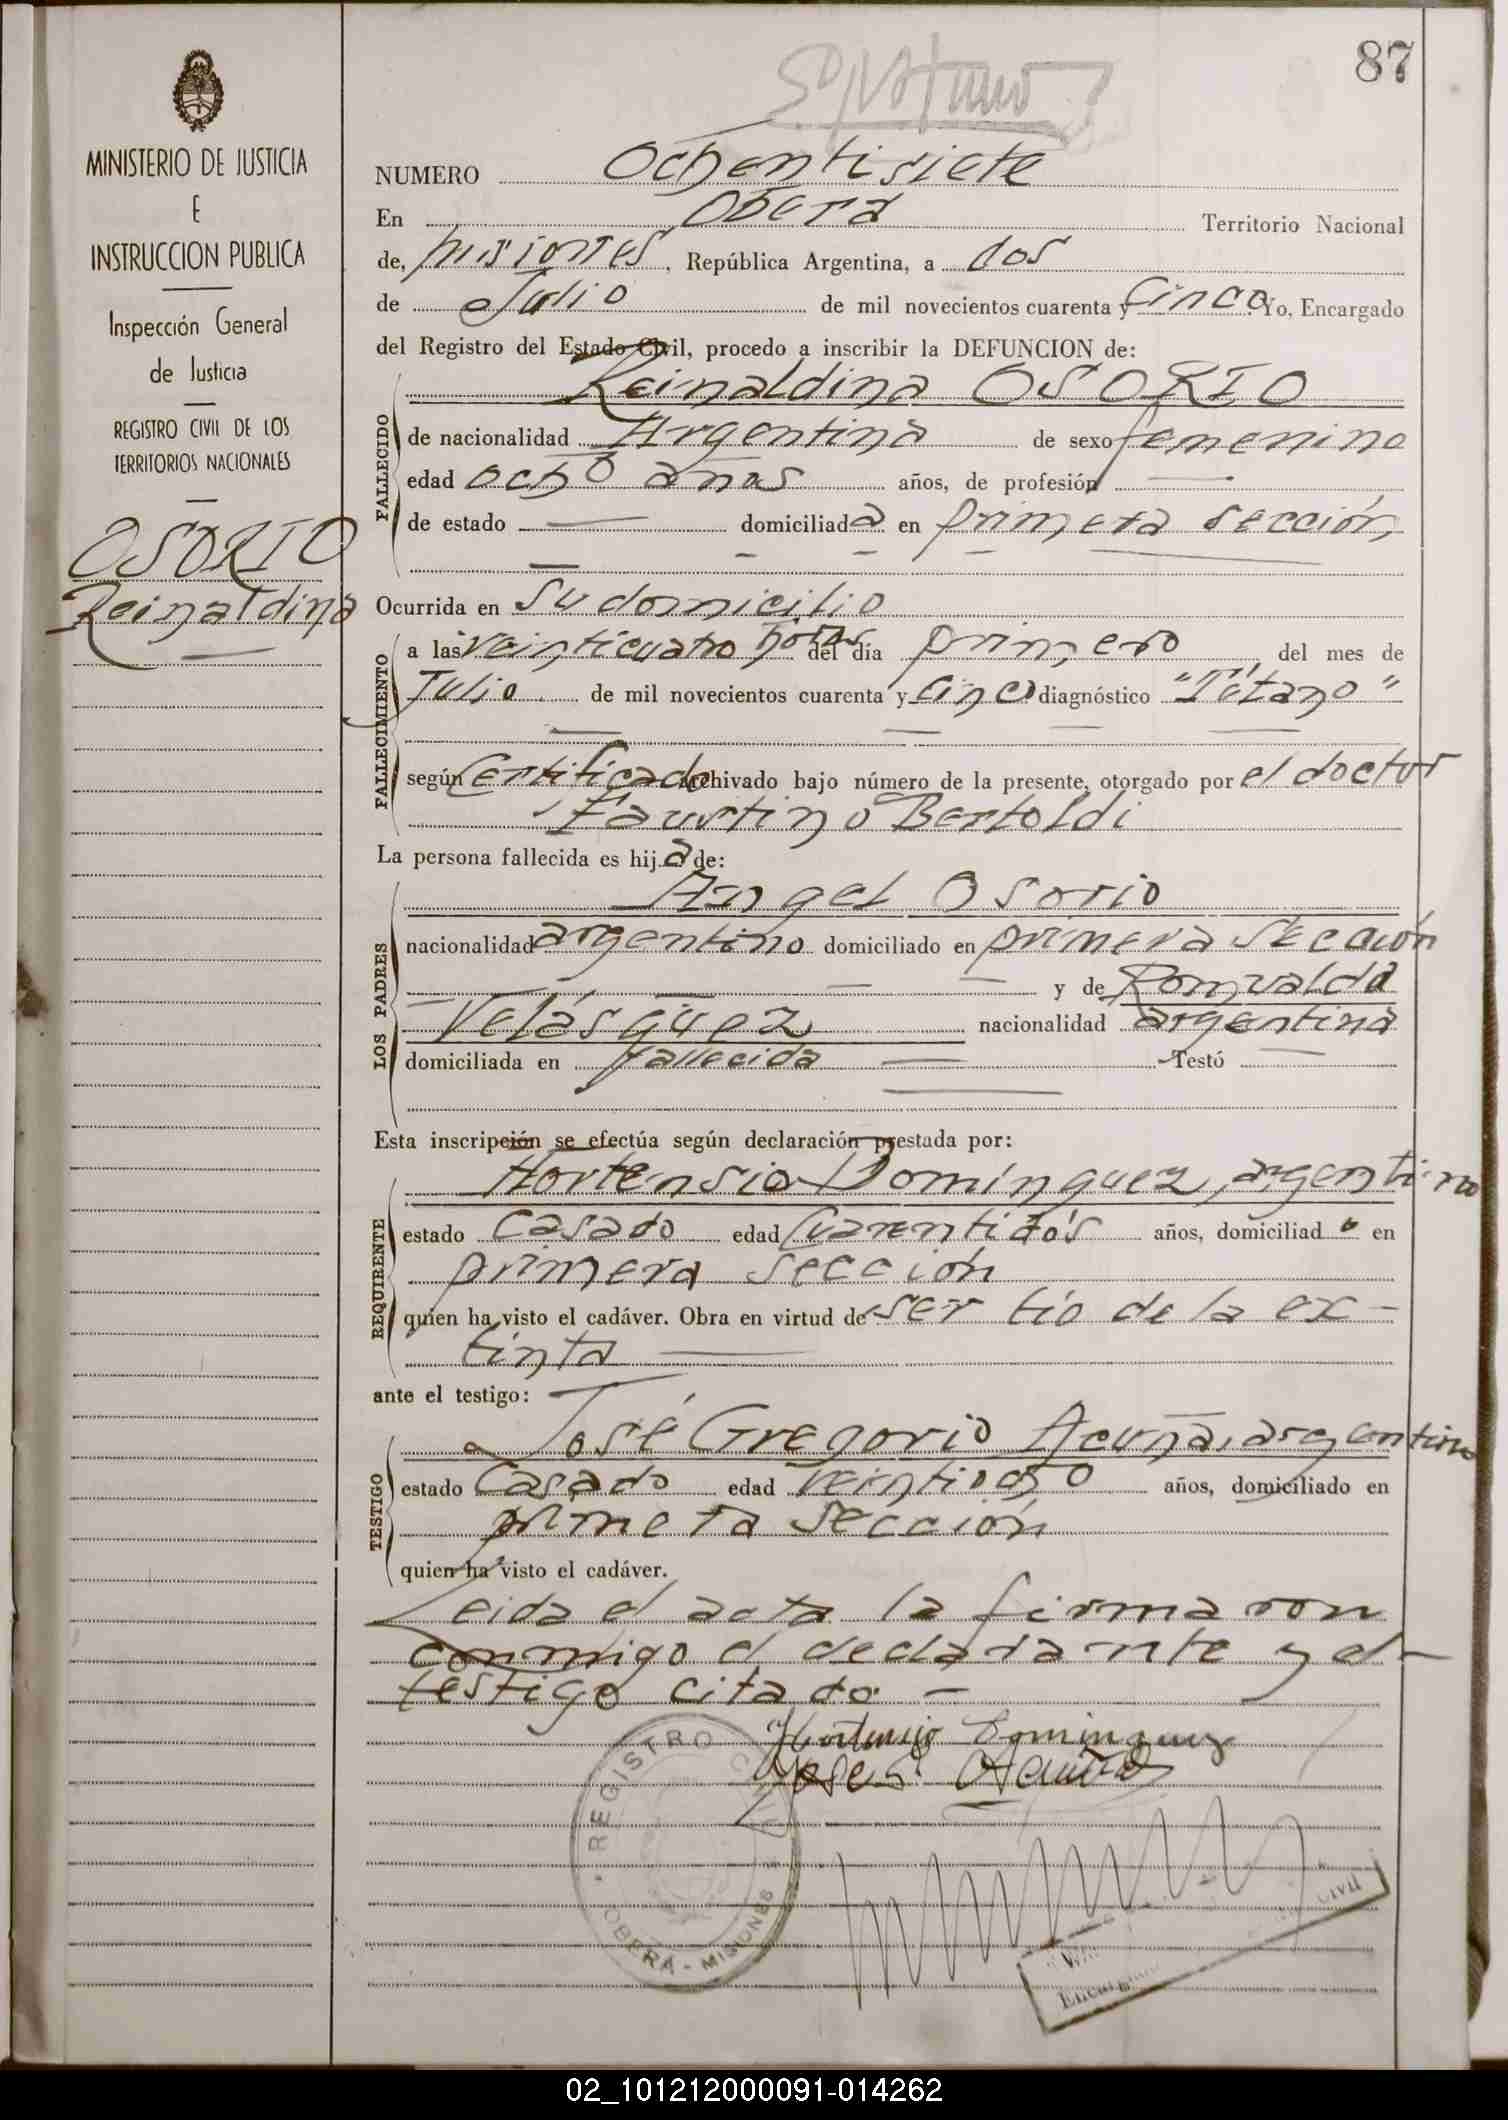 87
MINISTERIO DE JUSTICIA
E
INSTRUCCION PUBLICA
Inspección General
de Justicia
REGISTRO CIVIL DE LOS
TERRITORIOS NACIONALES
OSORIO
Reinaldina
NUMERO Ochentisiete
En Oberá Territorio Nacional
de, Misiones, República Argentina, a dos
de Julio de mil novecientos cuarenta y Cinco. Yo, Encargado
del Registro del Estado Civil, procedo a inscribir la DEFUNCION de:
Reinaldina OSORIO
FALLECIDO
de nacionalidad Argentina de sexo femenino
edad ocho años años, de profesión
de estado domiciliada en primera sección,
Ocurrida en Su domicilio
FALLECIMIENTO
a las veinticuatro horas del día primero del mes de
Julio de mil novecientos cuarenta y cinco diagnóstico "Tétano"
según Certificado archivado bajo número de la presente, otorgado por el doctor
Faustino Bertoldi
La persona fallecida es hija de:
LOS PADRES
Angel Osorio
nacionalidad argentino domiciliado en primera Sección
y de Romualda
Velásquez nacionalidad argentina
domiciliada en fallecida Testó
Esta inscripción se efectúa según declaración prestada por:
REQUIRENTE
Hortensio Domínguez, argentino
estado Casado edad Cuarentidós años, domiciliado en
primera sección
quien ha visto el cadáver. Obra en virtud de ser tío de la ex-
tinta
ante el testigo:
TESTIGO
José Gregorio Acuña, argentino
estado Casado edad veintiocho años, domiciliado en
primera sección
quien ha visto el cadáver.
Leida el acta la firmaron
conmigo el declarante y el
testigo citado -
Hortensio Dominguez
Jose G. Acuña
REGISTRO CIVIL
OBERA - MISIONES
Civil
02_101212000091-014262